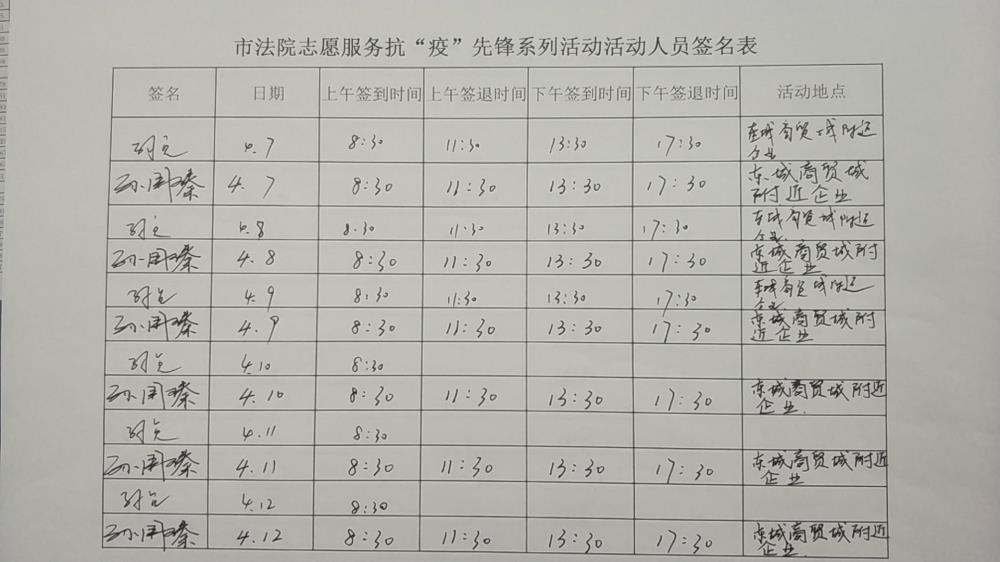 市法院志愿服务抗“疫”先锋系列活动活动人员签名表
签名 日期 上午签到时间 上午签退时间 下午签到时间 下午签退时间 活动地点
4.7 8:30 11:30 13:30 17:30 东城商贸城附近
企业
孙国臻 4.7 8:30 11:30 13:30 17:30 东城商贸城
附近企业
4.8 8:30 11:30 13:30 17:30 东城商贸城附近
企业
孙国臻 4.8 8:30 11:30 13:30 17:30 东城商贸城附
近企业
4.9 8:30 11:30 13:30 17:30 东城商贸城附近
企业
孙国臻 4.9 8:30 11:30 13:30 17:30 东城商贸城附
近企业
4.10 8:30
孙国臻 4.10 8:30 11:30 13:30 17:30 东城商贸城附近
企业.
4.11 8:30
孙国臻 4.11 8:30 11:30 13:30 17:30 东城商贸城附近
企业
4.12 8:30
孙国臻 4.12 8:30 11:30 13:30 17:30 东城商贸城附近
企业.